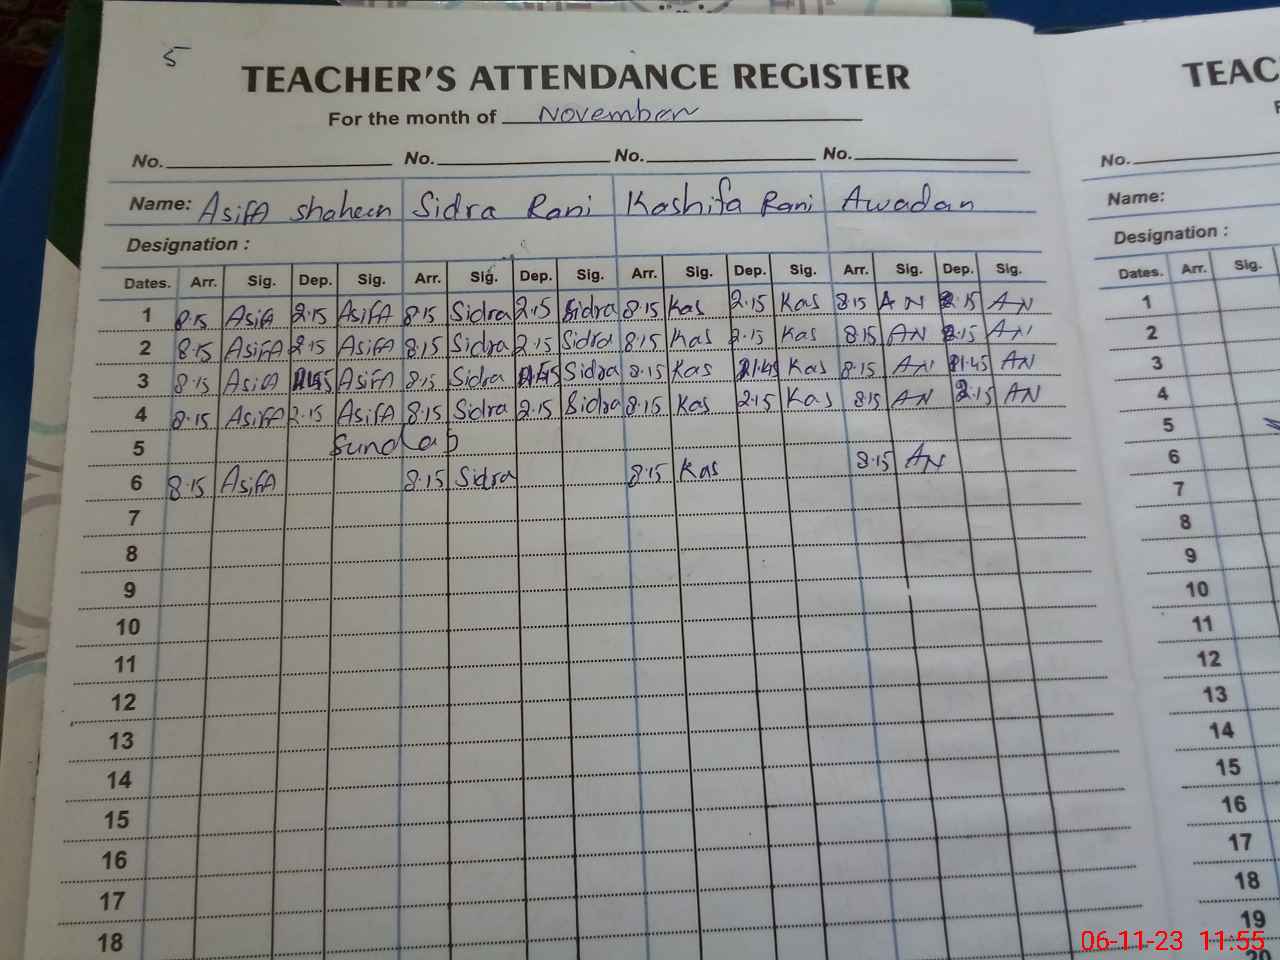 5
TEACHER'S ATTENDANCE REGISTER
For the month of November
No. No. No. No.
Name: Asifa shaheen Sidra Rani Kashifa Rani Awadan
Designation :
Dates. Arr. Sig. Dep. Sig. Arr. Sig. Dep. Sig. Arr. Sig. Dep. Sig. Arr. Sig. Dep. Sig.
1 8.15 Asifa 2.15 Asifa 8.15 Sidra 2.15 Sidra 8.15 Kas 2.15 Kas 8.15 AN 2.15 AN
2 8.15 Asifa 2.15 Asifa 8.15 Sidra 2.15 Sidra 8.15 Kas 2.15 Kas 8.15 AN 2.15 AN
3 8.15 Asifa 1.45 Asifa 8.15 Sidra 1.45 Sidra 8.15 Kas 1.45 Kas 8.15 AN 1.45 AN
4 8.15 Asifa 2.15 Asifa 8.15 Sidra 2.15 Sidra 8.15 Kas 2.15 Kas 8.15 AN 2.15 AN
5 Sunday
6 8.15 Asifa 8.15 Sidra 8.15 Kas 8.15 AN
7
8
9
10
11
12
13
14
15
16
17
18
TEAC
No.
Name:
Designation :
Dates. Arr. Sig.
1
2
3
4
5
6
7
8
9
10
11
12
13
14
15
16
17
18
19
20
06-11-23 11:55